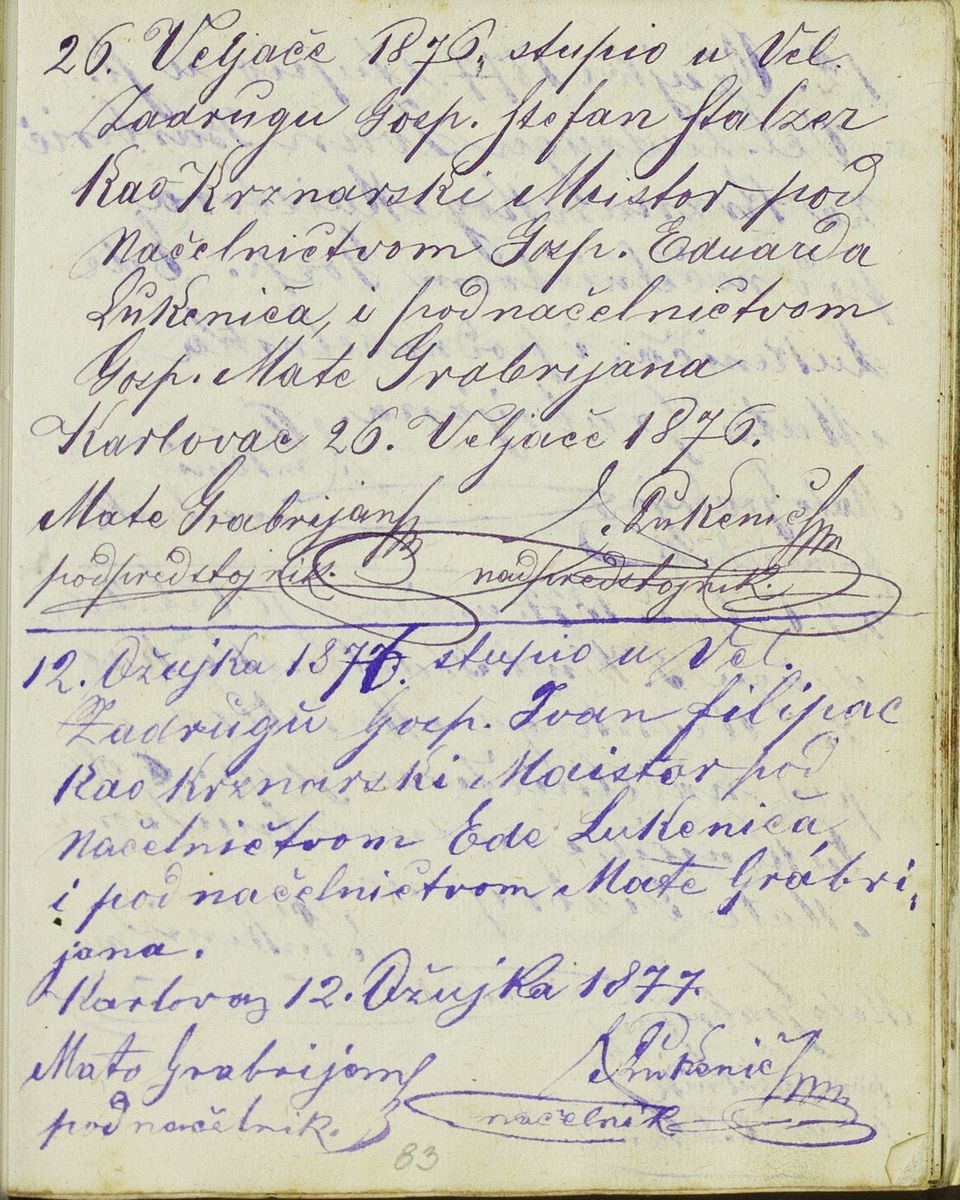 26. Veljače 1876, stupio u Vel.
Zadrugu Gosp. Stefan Stalzer
Kao Krznarski Meistor pod
Načelničtvom Gosp. Eduarda
Lukeniča, i podnačelničtvom
Gosp. Mate Grabrijana
Karlovac 26. Veljače 1876.
Mate Grabrijan
Lukenič
podpredstojnik.
nadpredstojnik
12. Ožujka 1877. stupio u Vel.
Zadrugu Gosp. Ivan Filipac
Kao Krznarski Maistor pod
Načelničtvom Ede Lukeniča
i podnačelničtvom Mate Grábri-
jana.
Karlovaz 12. Ožujka 1877.
Mato Grabrijan
Lukenič
podnačelnik.
načelnik
83